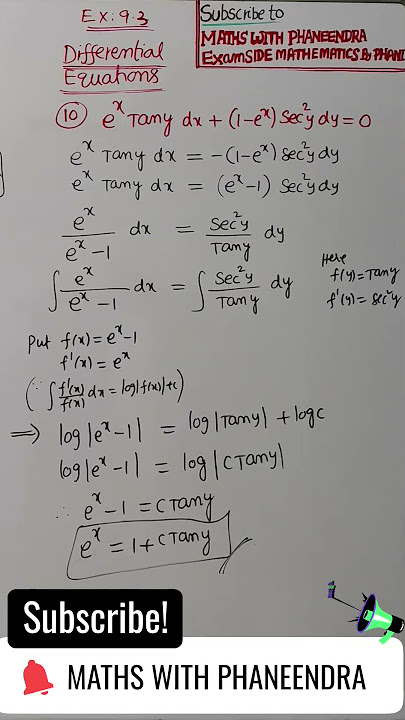 Ex: 9.3
Differential
Equations
Subscribe to
MATHS WITH PHANEENDRA
ExamSIDE MATHEMATICS By PHANI
⑩ e^x Tany dx + (1-e^x) Sec²y dy = 0
e^x Tany dx = -(1-e^x) Sec²y dy
e^x Tany dx = (e^x-1) Sec²y dy
e^x/(e^x-1) dx = Sec²y/Tany dy
∫ e^x/(e^x-1) dx = ∫ Sec²y/Tany dy
Here
f(y) = Tany
f'(y) = Sec²y
Put f(x) = e^x-1
f'(x) = e^x
(∵ ∫ f'(x)/f(x) dx = log|f(x)|+c)
⇒ log|e^x-1| = log|Tany| + logc
log|e^x-1| = log|CTany|
∴ e^x-1 = CTany
e^x = 1+CTany
Subscribe!
MATHS WITH PHANEENDRA